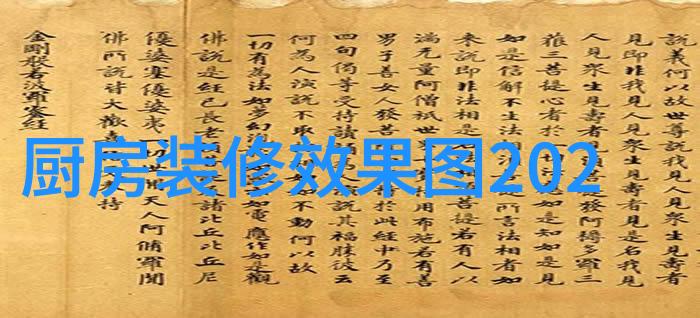 說義何以故世尊說我見人見眾生見壽者
見即非我見人見眾生見壽者見是名我見
人見眾生見壽者見發阿耨多羅三
藐三菩提心者於如是知如是見
如是信解不生法相所言法相者如
來說即非法相是菩提若有人以
滿无量阿僧祇世用布施若有善
男子善女人發菩於此經乃至
四句偈等受持讀誦說其福勝彼云
何為人演說不取不動何以故
一切有為法如夢幻如電應作如是觀
佛說是經已長老諸比丘比丘尼
優婆塞優婆夷一切世間天人阿脩羅聞
佛所說皆大歡喜持
金剛般若波羅蜜經
厨房装修效果图202